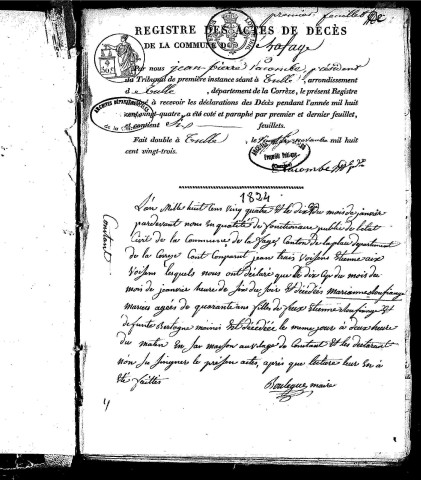 premier feuillet
REGISTRE DES ACTES DE DÉCÈS
DE LA COMMUNE DE Lafage
Par nous jean pierre Lacombe président
du Tribunal de première instance séant à Tulle, arrondissement
de Tulle, département de la Corrèze, le présent Registre
à recevoir les déclarations des Décès pendant l'année mil huit
cent vingt-quatre, a été coté et paraphé par premier et dernier feuillet,
contenant Six feuillets.
ARCHIVES DÉPARTEMENTALES
Fait double à Tulle le novembre mil huit
cent vingt-trois.
Propriété Publique
Lacombe
1824
Constant
L'an Mille huit cens vingt quatre et le dix du mois de janvier
pardevant nous En qualité de fonctionaire publique de l'état
Civil de la Commune de la fage, Canton de laplau département
de la Correze Sont Comparut jean trais Voisin Etienne aux
Voisin lesquels nous ont déclaré que le dix du mois du
mois de janvier heure de du Soir Est décédée Marianne
Mariée agées de quarante ans filles de feux Etienne Et
defunte Bertagne mainis Est décédée le meme jour à deux heure
du matin En sa maison au vilage de Constant Et les declarant
non su Soigner le présan actes, après que lecture leur En à
Eté faittes
Boulegue, maire